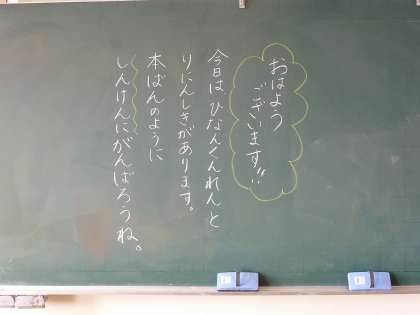 おはよう
ございます!!
今日は ひなんくんれんと
りにんしきがあります。
本ばんのように
しんけんにがんばろうね。